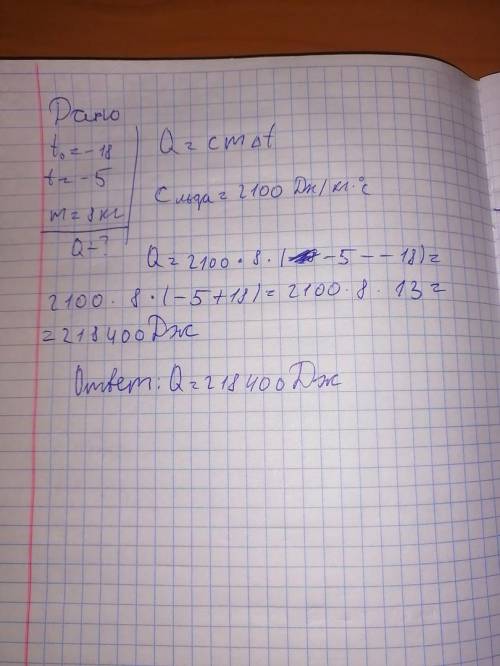 Дано
t₀ = -18
t = -5
m = 8 кг
Q - ?
Q = c m Δt
C льда = 2100 Дж/кг·°c
Q = 2100 · 8 · ( -5 - - 18) =
2100 · 8 · (-5 + 18) = 2100 · 8 · 13 =
= 218400 Дж
Ответ: Q = 218400 Дж